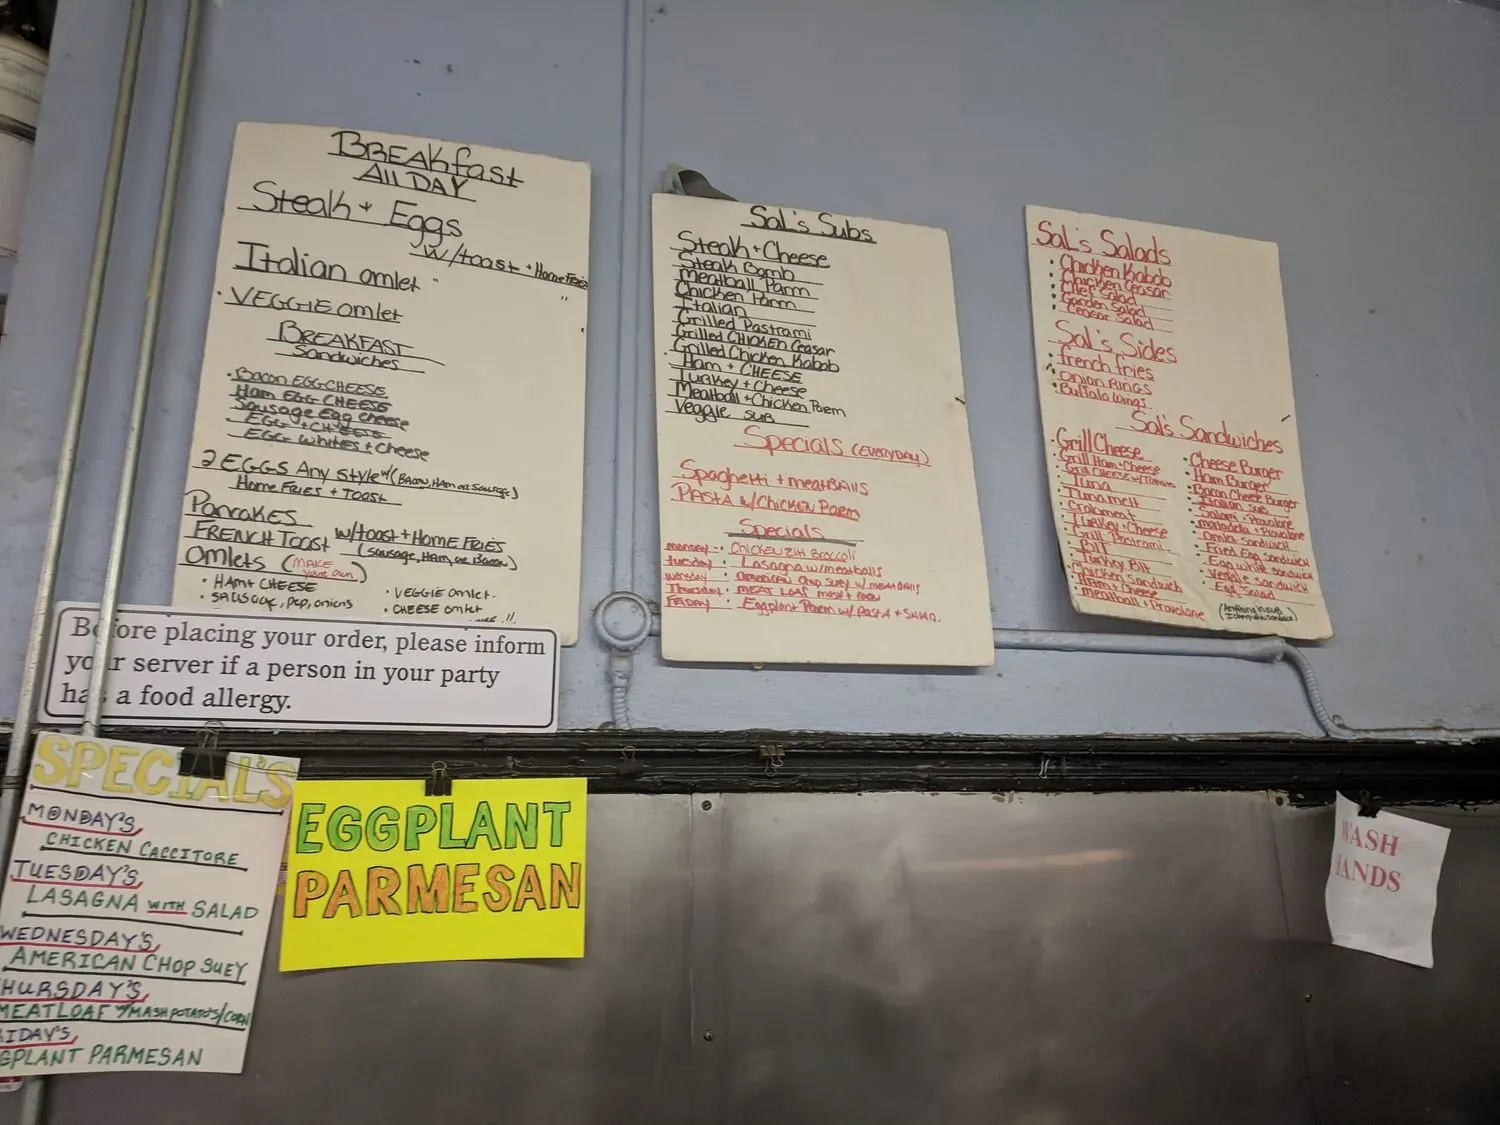 BREAkfast
All DAY
Steak + Eggs
w/toast + HomeFries
Italian omlet " "
VEGGIE omlet
BREAKFAST
Sandwiches
Bacon EGG CHEESE
Ham EGG CHEESE
Sausage Egg cheese
EGG + CHEESE
EGG whites + Cheese
2 EGGS Any Style w/ (Bacon, Ham or Sausage)
Home FRIES + TOAST
Pancakes
FRENCH TOAST w/toast + Home FRIES
Omlets (MAKE your own) (sausage, Ham, or Bacon)
• HAM + CHEESE
• SAUSAGE, pep, onions
• VEGGIE omlet.
• CHEESE omlet
Before placing your order, please inform
your server if a person in your party
has a food allergy.
SPECIAL'S
MONDAY'S
CHICKEN CACCITORE
TUESDAY'S
LASAGNA WITH SALAD
WEDNESDAY'S
AMERICAN CHOP SUEY
HURSDAY'S
MEATLOAF W/MASH POTATO'S/CORN
IDAY'S
GPLANT PARMESAN
EGGPLANT
PARMESAN
Sal's Subs
Steak + Cheese
Steak Bomb
Meatball Parm
Chicken Parm
Italian
Grilled Pastrami
Grilled CHICKEN Ceasar
Grilled Chicken Kabob
Ham + CHEESE
Turkey + Cheese
Meatball + Chicken Parm
Veggie SUB
Specials (EVERYDAY)
Spaghetti + meatBAlls
PASTA w/Chicken Parm
Specials
monday - • Chicken Ziti Broccoli
tuesday • Lasagna w/meatballs
wensday • American chop suey w/ meatBAlls
Thursday • MEAT LOAF mash + corn
FRIDAY • Eggplant Parm w/ Pasta + SALAD.
Sal's Salads
• Chicken Kabob
• Chicken Ceasar
• Chef Salad
• Garden Salad
• Ceasar Salad
Sal's Sides
• french fries
• Onion RINGS
• Buffalo wings
Sal's Sandwiches
• Grill Cheese
• Grill Ham + Cheese
• Grill Cheese w/ Tomato
• Tuna
• Tuna melt
• Crabmeat
• Turkey + Cheese
• Grill Pastrami
• BLT
• Turkey Blt
• Chicken Sandwich
• Ham + Cheese
• meatball + Provolone
• Cheese Burger
• Ham Burger
• Bacon Cheese Burger
• Italian sub
• Salami + Provolone
• mortadella + Provolone
• Omlet Sandwich
• Fried Egg sandwich
• Egg white sandwich
• Veggie sandwich
• Egg Salad
WASH
HANDS